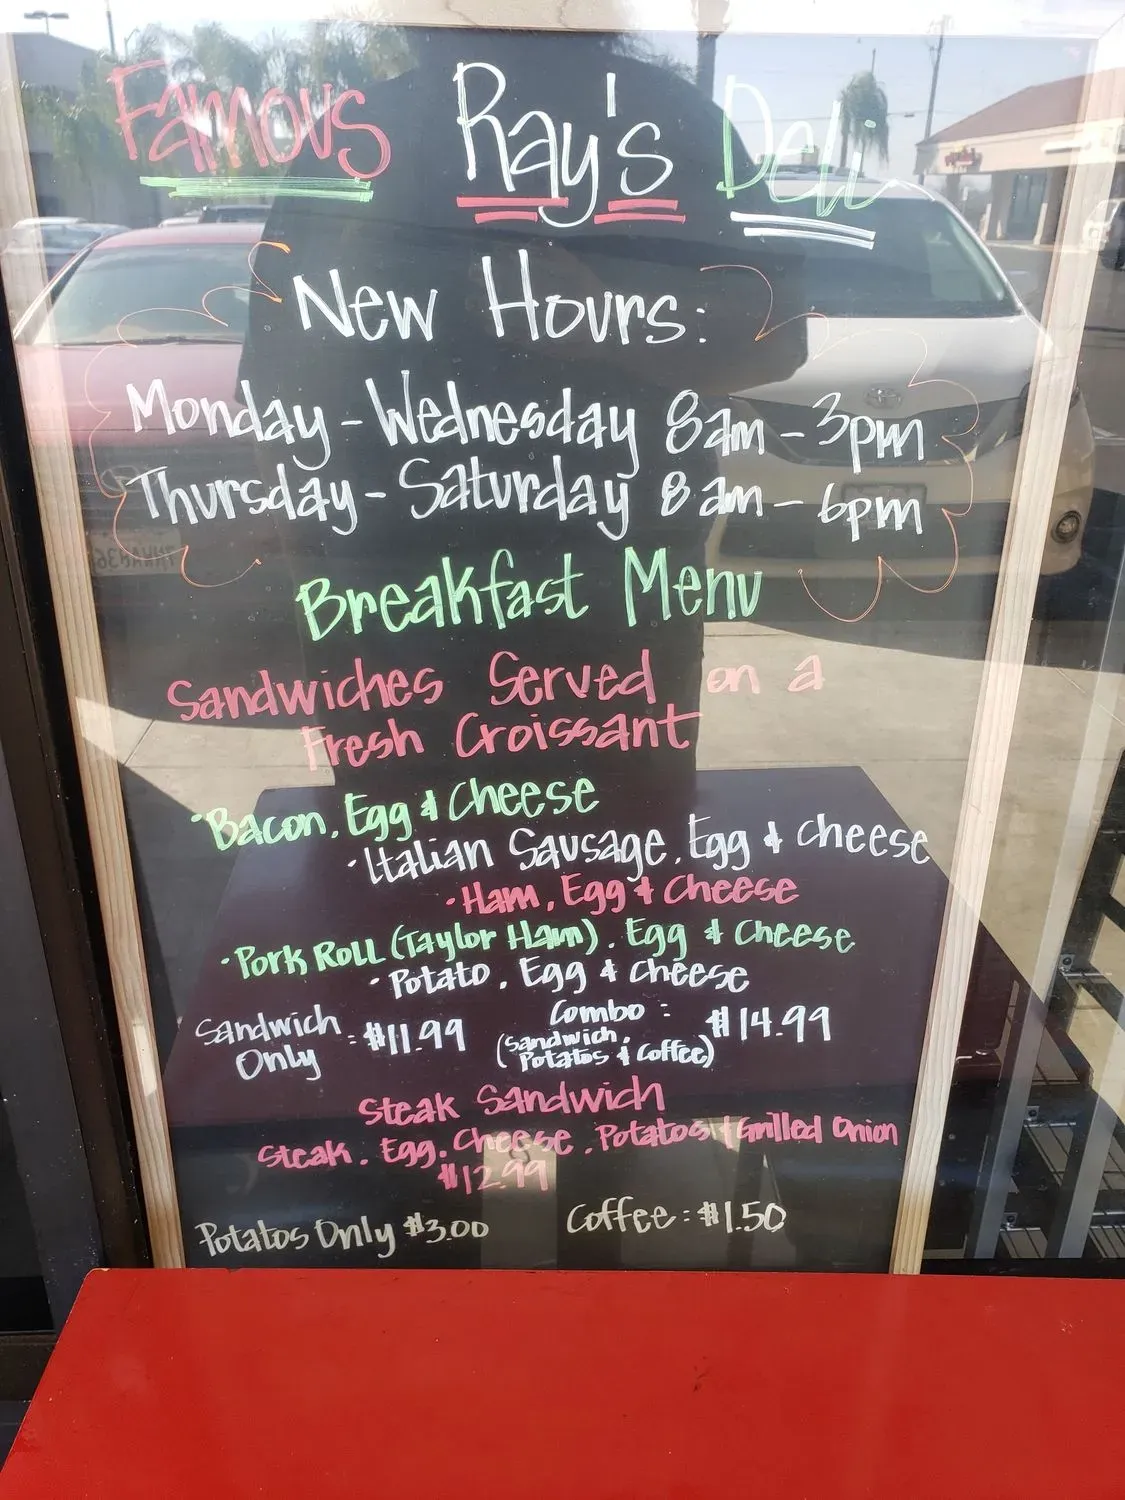 Famous Ray's Deli
New Hours:
Monday - Wednesday 8am - 3pm
Thursday - Saturday 8am - 6pm
Breakfast Menu
Sandwiches Served on a
Fresh Croissant
·Bacon, Egg & Cheese
·Italian Sausage, Egg & Cheese
·Ham, Egg & Cheese
·Pork Roll (Taylor Ham), Egg & Cheese
·Potato, Egg & Cheese
Sandwich Only : $11.99
Combo : (Sandwich, Potatos & Coffee) $14.99
Steak Sandwich
Steak, Egg, Cheese, Potatos & Grilled Onion
$12.99
Potatos Only $3.00 Coffee: $1.50